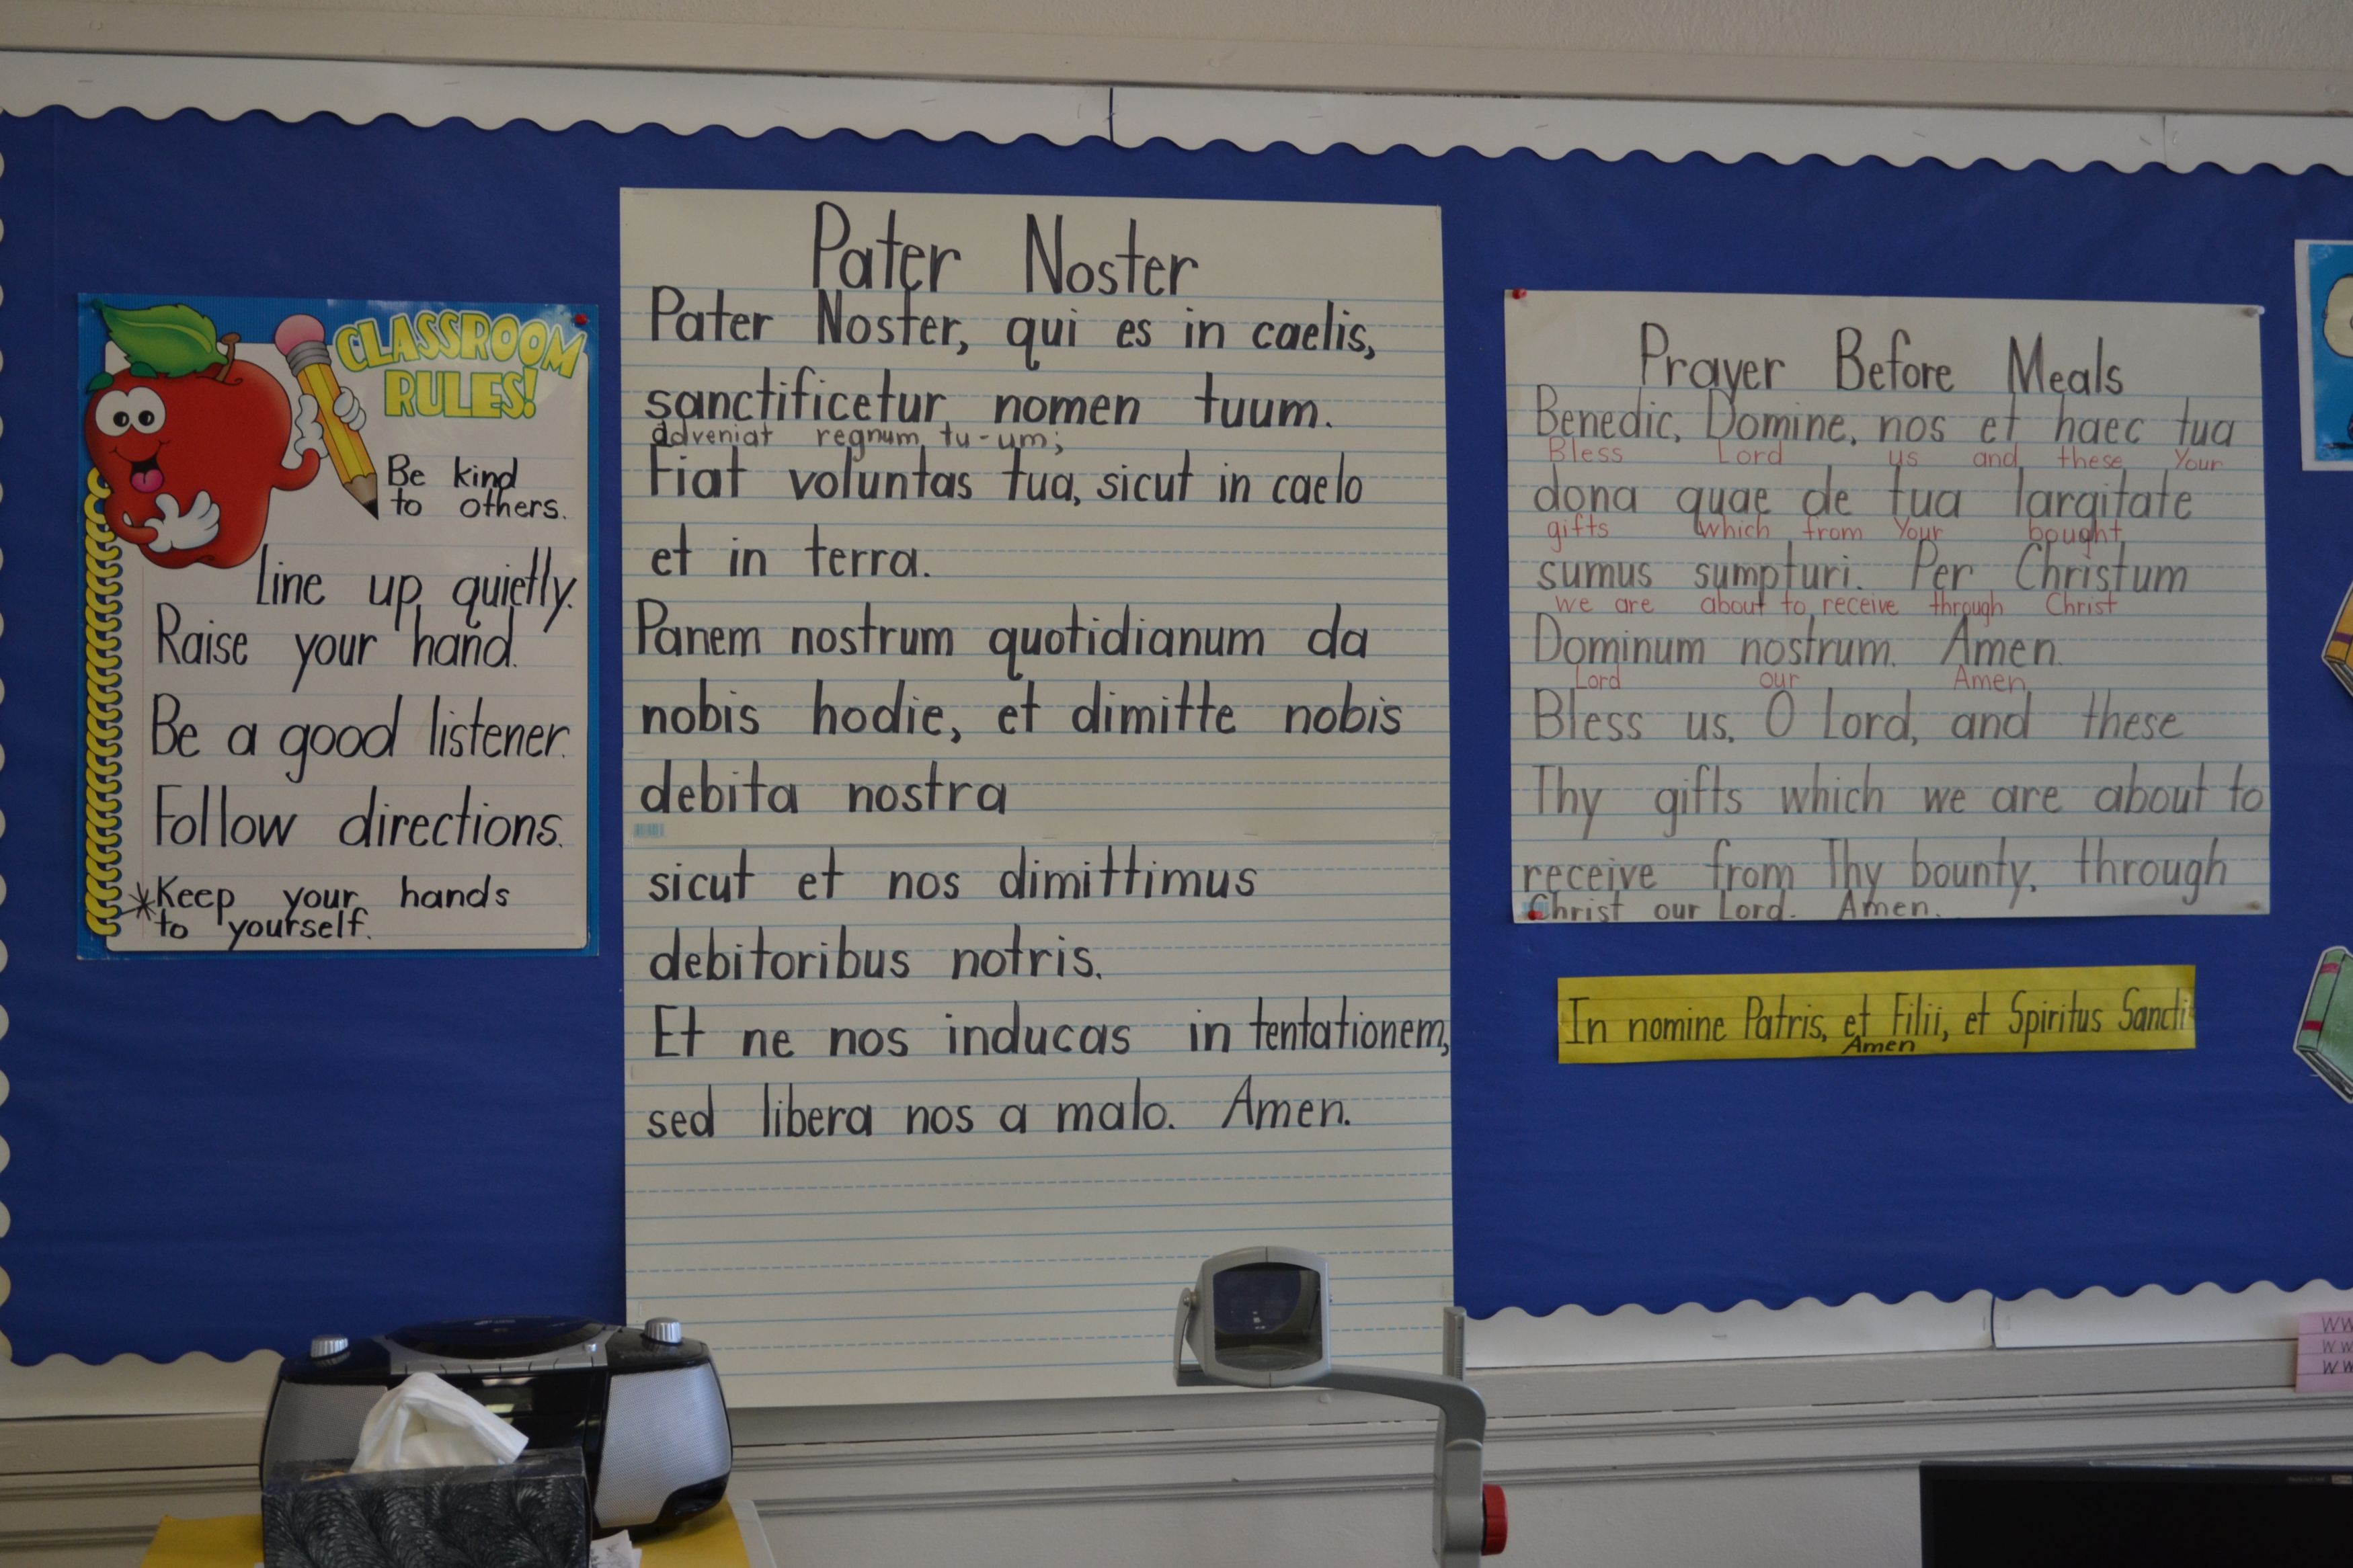 CLASSROOM
RULES!
Be kind
to others.
Line up quietly.
Raise your hand.
Be a good listener.
Follow directions.
*Keep your hands
to yourself.
Pater Noster
Pater Noster, qui es in caelis,
sanctificetur nomen tuum.
adveniat regnum tu-um;
Fiat voluntas tua, sicut in caelo
et in terra.
Panem nostrum quotidianum da
nobis hodie, et dimitte nobis
debita nostra
sicut et nos dimittimus
debitoribus notris.
Et ne nos inducas in tentationem,
sed libera nos a malo. Amen.
Prayer Before Meals
Benedic, Domine, nos et haec tua
Bless Lord us and these Your
dona quae de tua largitate
gifts which from Your bought
sumus sumpturi. Per Christum
we are about to receive through Christ
Dominum nostrum. Amen.
Lord our Amen
Bless us, O Lord, and these
Thy gifts which we are about to
receive from Thy bounty, through
Christ our Lord. Amen.
In nomine Patris, et Filii, et Spiritus Sancti
Amen